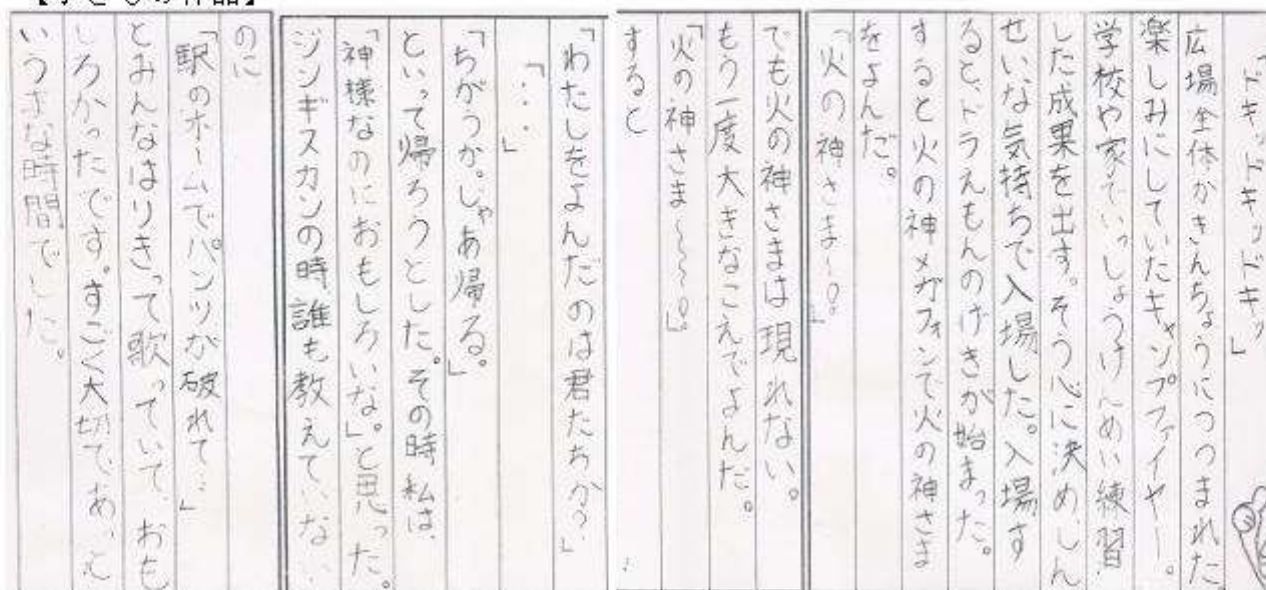 【子どもの作品】
「ドキッドキッドキッ」
広場全体がきんちょうにつつまれた。
楽しみにしていたキャンプファイヤー。
学校や家でいっしょうけんめい練習
した成果を出す。そう心に決め、しん
せいな気持ちで入場した。入場す
ると、ドラえもんのげきが始まった。
すると火の神メガフォンで火の神さま
をよんだ。
「火の神さま〜!。」
でも火の神さまは現れない。
もう一度大きなこえでよんだ。
「火の神さま〜〜〜!!」。
すると
「わたしをよんだのは君たちか?」
「・・・」
「ちがうか。じゃあ帰る。」
といって帰ろうとした。その時私は、
「神様なのにおもしろいな」。と思った。
ジンギスカンの時誰も教えていない
のに
「駅のホームでパンツが破れて…」
とみんなはりきって歌っていて、おも
しろかったです。すごく大切で、あっと
いうまな時間でした。